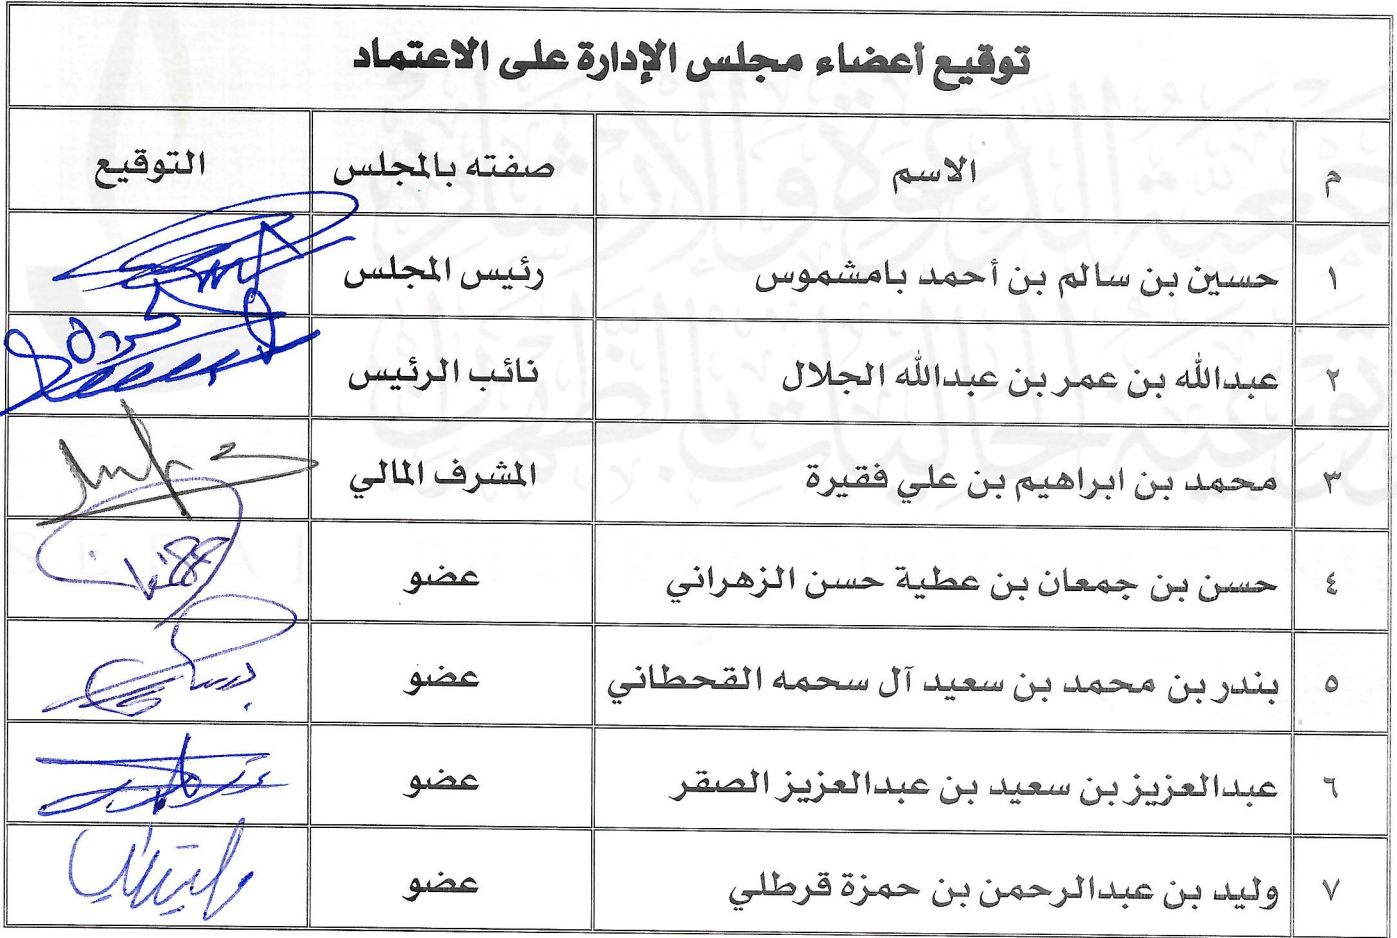 توقيع أعضاء مجلس الإدارة على الاعتماد
م الاسم صفته بالمجلس التوقيع
١ حسين بن سالم بن أحمد بامشموس رئيس المجلس
٢ عبدالله بن عمر بن عبدالله الجلال نائب الرئيس
٣ محمد بن ابراهيم بن علي فقيرة المشرف المالي
٤ حسن بن جمعان بن عطية حسن الزهراني عضو
٥ بندر بن محمد بن سعيد آل سحمه القحطاني عضو
٦ عبدالعزيز بن سعيد بن عبدالعزيز الصقر عضو
٧ وليد بن عبدالرحمن بن حمزة قرطلي عضو